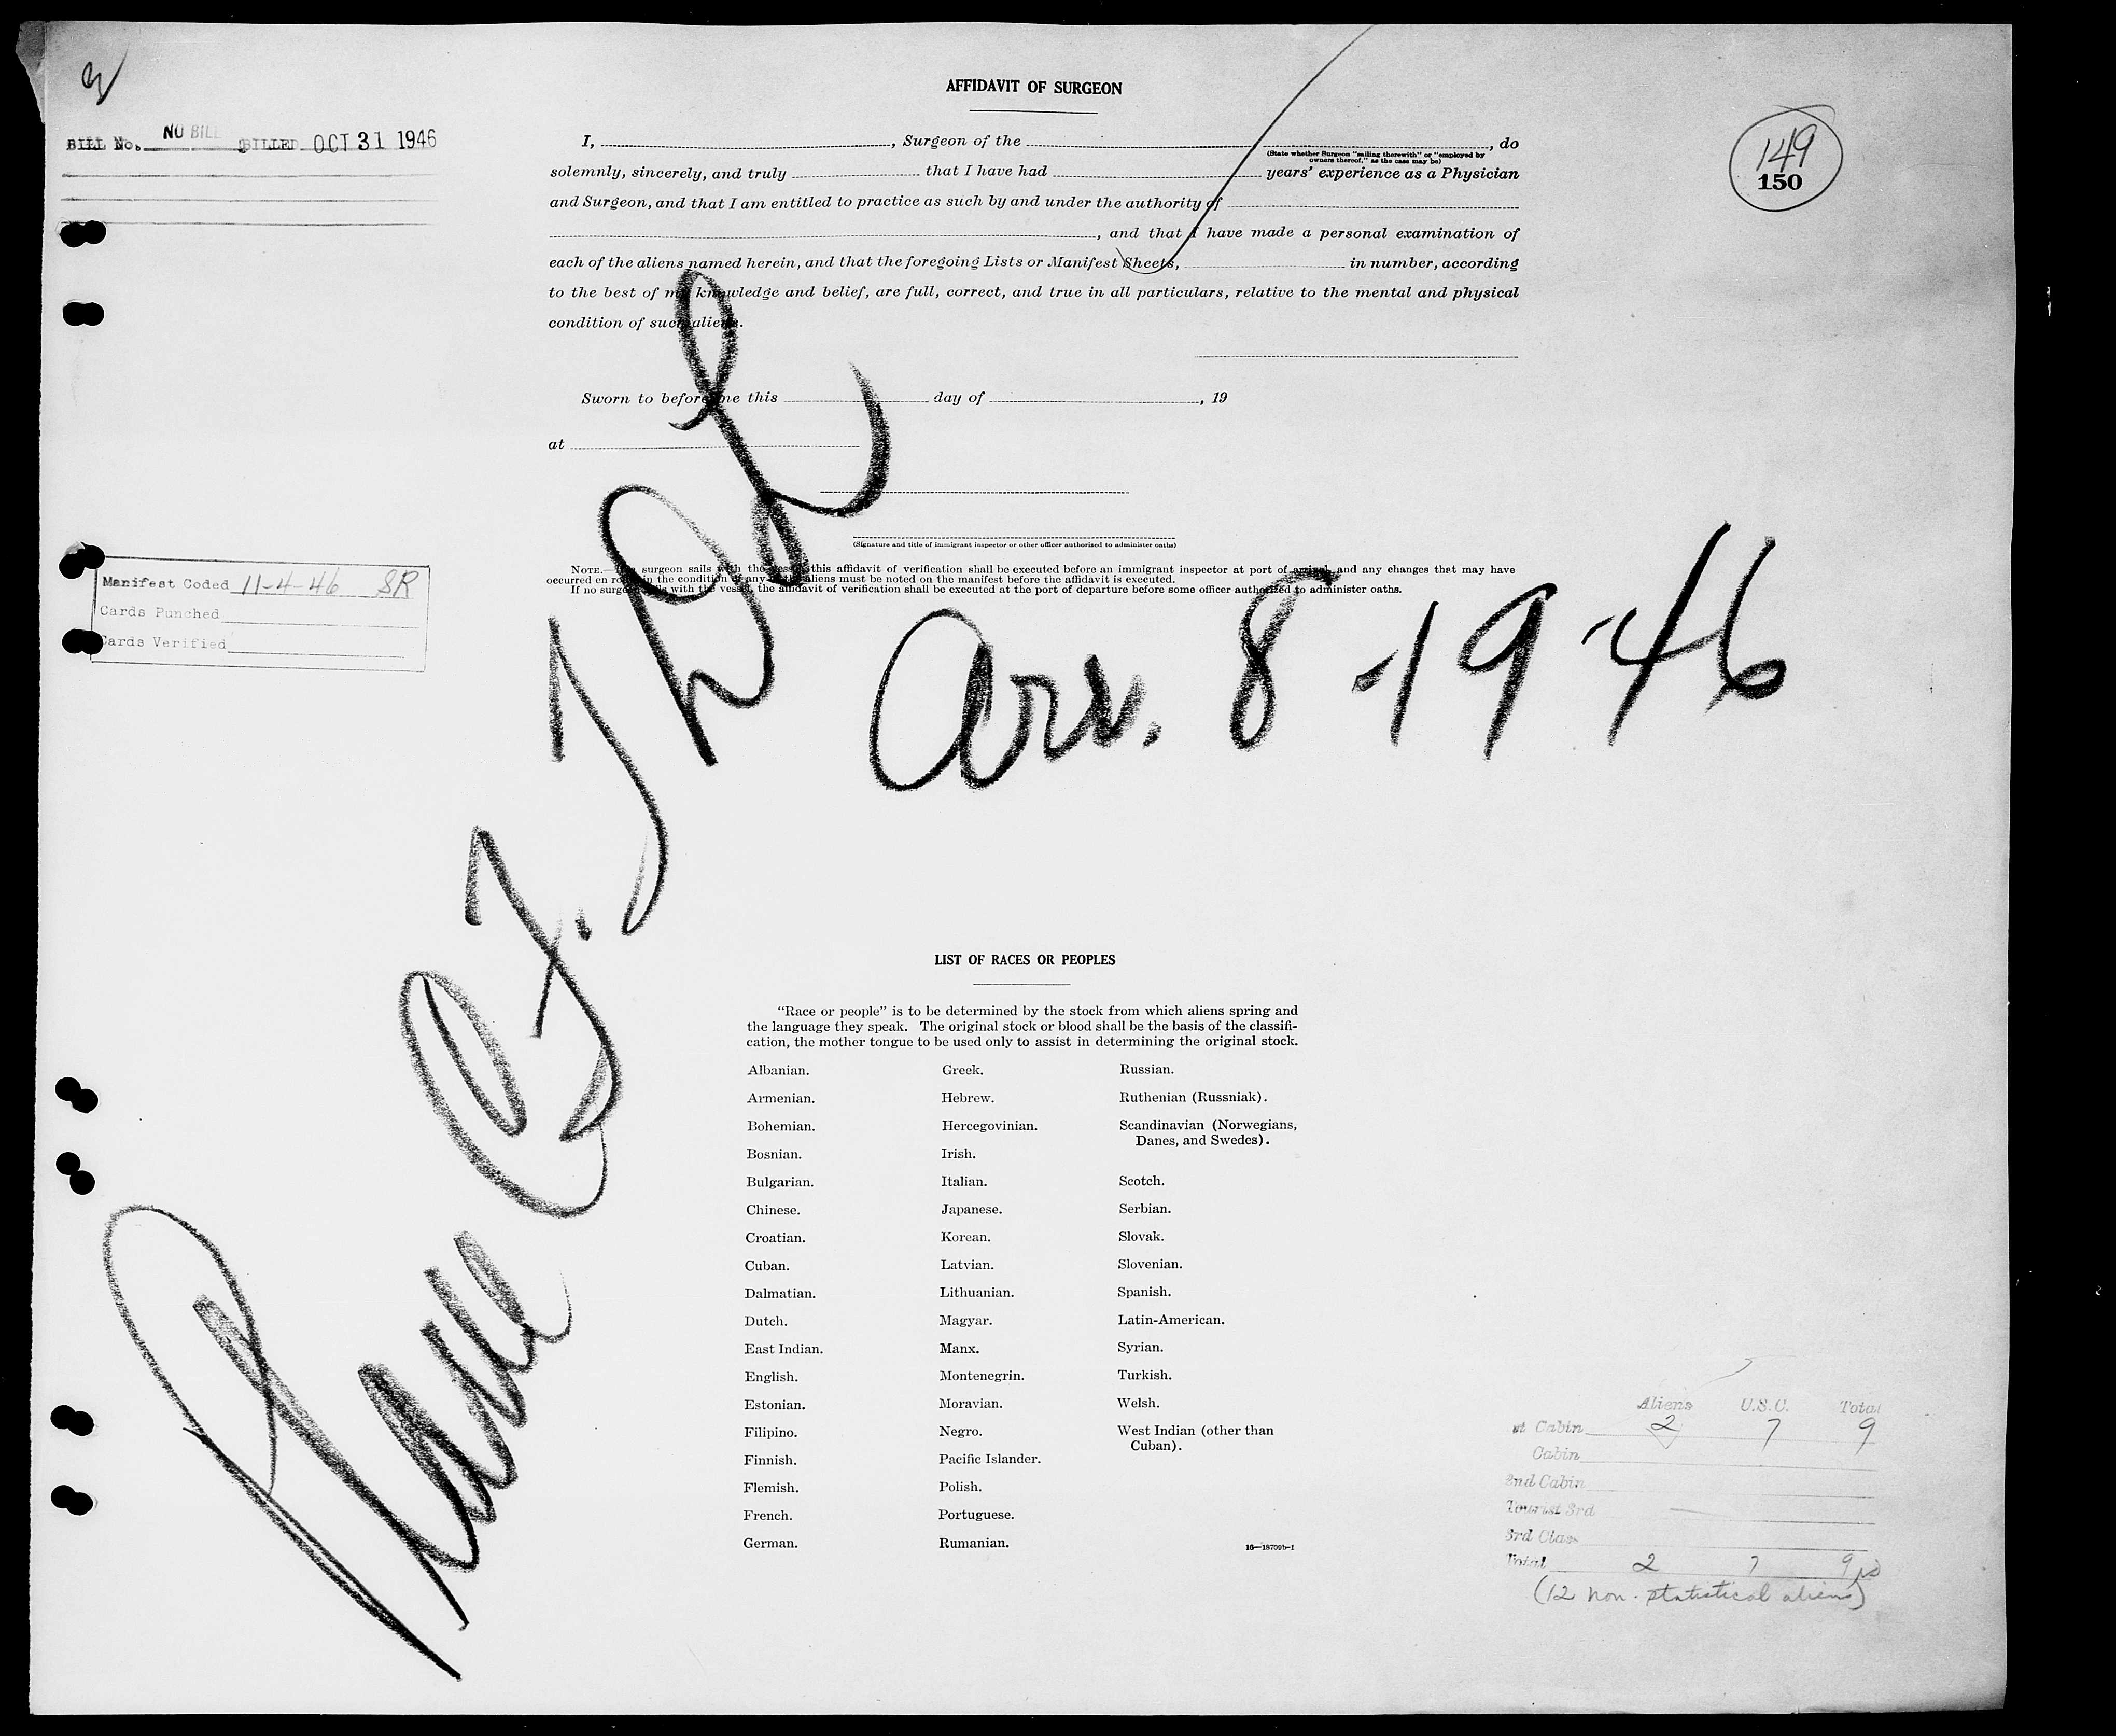 AFFIDAVIT OF SURGEON
BILL No. NO BILL BILLED OCT 31 1946
149
150
I, , Surgeon of the , do
(State whether Surgeon "sailing therewith" or "employed by
owners thereof," as the case may be)
solemnly, sincerely, and truly that I have had years' experience as a Physician
and Surgeon, and that I am entitled to practice as such by and under the authority of
, and that I have made a personal examination of
each of the aliens named herein, and that the foregoing Lists or Manifest Sheets, in number, according
to the best of my knowledge and belief, are full, correct, and true in all particulars, relative to the mental and physical
condition of such aliens.
Sworn to before me this day of , 19
at
(Signature and title of immigrant inspector or other officer authorized to administer oaths)
NOTE.—If a surgeon sails with the vessel, this affidavit of verification shall be executed before an immigrant inspector at port of arrival, and any changes that may have
occurred en route in the condition of any such aliens must be noted on the manifest before the affidavit is executed.
If no surgeon sails with the vessel, the affidavit of verification shall be executed at the port of departure before some officer authorized to administer oaths.
Manifest Coded 11-4-46 SR
Cards Punched
Cards Verified
Plane
arr. 8-19-46
LIST OF RACES OR PEOPLES
"Race or people" is to be determined by the stock from which aliens spring and
the language they speak. The original stock or blood shall be the basis of the classifi-
cation, the mother tongue to be used only to assist in determining the original stock.
Albanian. Greek. Russian.
Armenian. Hebrew. Ruthenian (Russniak).
Bohemian. Hercegovinian. Scandinavian (Norwegians,
Danes, and Swedes).
Bosnian. Irish.
Bulgarian. Italian. Scotch.
Chinese. Japanese. Serbian.
Croatian. Korean. Slovak.
Cuban. Latvian. Slovenian.
Dalmatian. Lithuanian. Spanish.
Dutch. Magyar. Latin-American.
East Indian. Manx. Syrian.
English. Montenegrin. Turkish.
Estonian. Moravian. Welsh.
Filipino. Negro. West Indian (other than
Cuban).
Finnish. Pacific Islander.
Flemish. Polish.
French. Portuguese.
German. Rumanian.
16—18709b-1
Aliens U.S.C. Total
Cabin 2 7 9
Cabin
2nd Cabin
Tourist 3rd
3rd Class
Total 2 7 9
(12 non-statistical aliens)